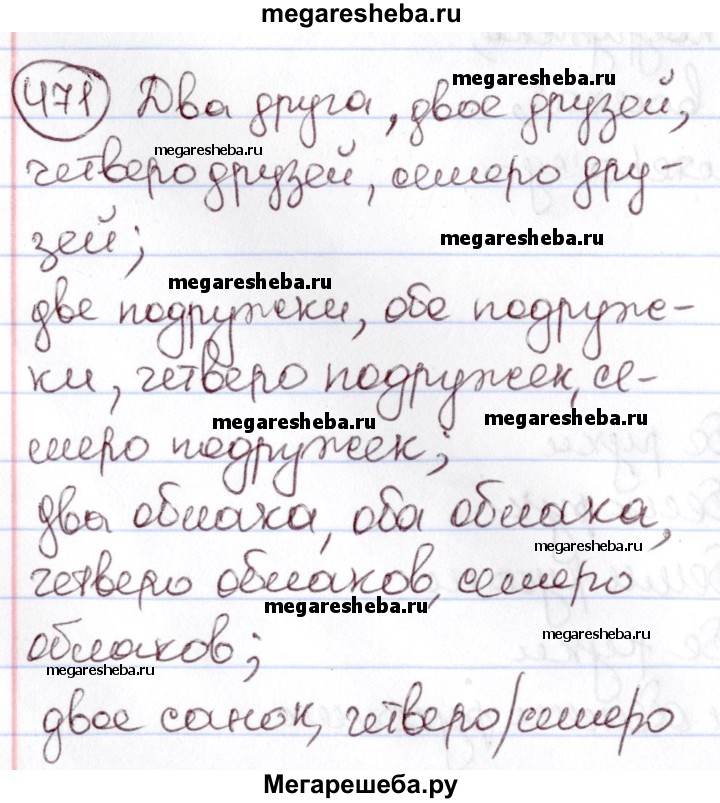 megaresheba.ru
471 Два друга, двое друзей,
megaresheba.ru
megaresheba.ru
четверо друзей, семеро дру-
зей;
megaresheba.ru
megaresheba.ru
две подружки, обе подруж-
ки, четверо подружек, се-
megaresheba.ru
megaresheba.ru
меро подружек;
два облака, оба облака,
megaresheba.ru
четверо облаков, семеро
megaresheba.ru
megaresheba.ru
облаков;
megaresheba.ru
двое санок, четверо/семеро
Мегарешеба.ру